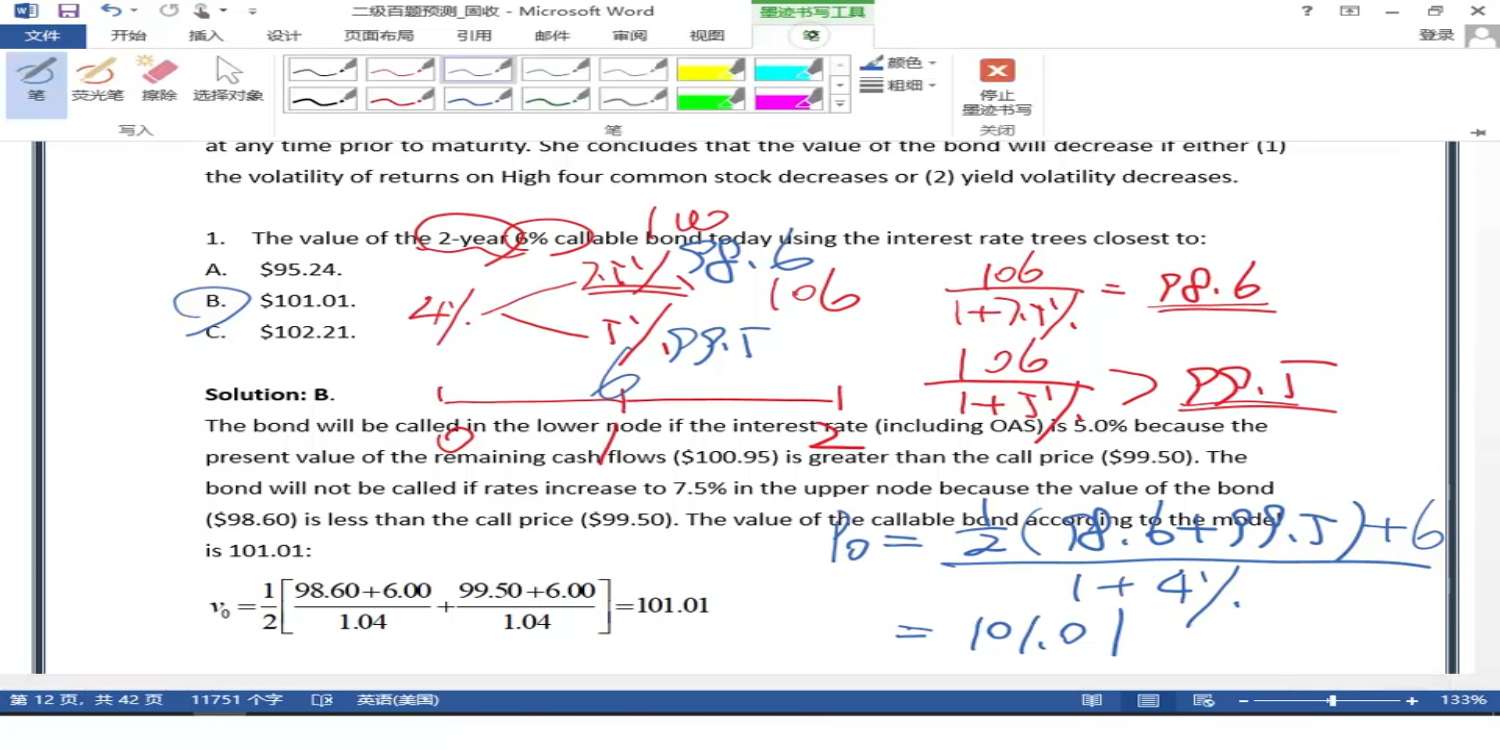 二级百题预测_固收 - Microsoft Word
墨迹书写工具
?
文件 开始 插入 设计 页面布局 引用 邮件 审阅 视图 笔 登录
笔 荧光笔 擦除 选择对象
颜色
粗细
停止
墨迹书写
写入 笔 关闭
at any time prior to maturity. She concludes that the value of the bond will decrease if either (1)
the volatility of returns on High four common stock decreases or (2) yield volatility decreases.
100
1. The value of the 2-year 6% callable bond today using the interest rate trees closest to:
A. $95.24.
B. $101.01.
C. $102.21.
4% 7.5% 98.6 106
5% 99.5
106 / 1+7.5% = 98.6
106 / 1+5% > 99.5
6
0 1 2
Solution: B.
The bond will be called in the lower node if the interest rate (including OAS) is 5.0% because the
present value of the remaining cash flows ($100.95) is greater than the call price ($99.50). The
bond will not be called if rates increase to 7.5% in the upper node because the value of the bond
($98.60) is less than the call price ($99.50). The value of the callable bond according to the model
is 101.01:
v₀ = 1/2 [ 98.60+6.00 / 1.04 + 99.50+6.00 / 1.04 ] = 101.01
P0 = 1/2 (98.6+99.5)+6 / 1+4%
= 101.01
第 12 页，共 42 页 11751 个字 英语(美国) 133%